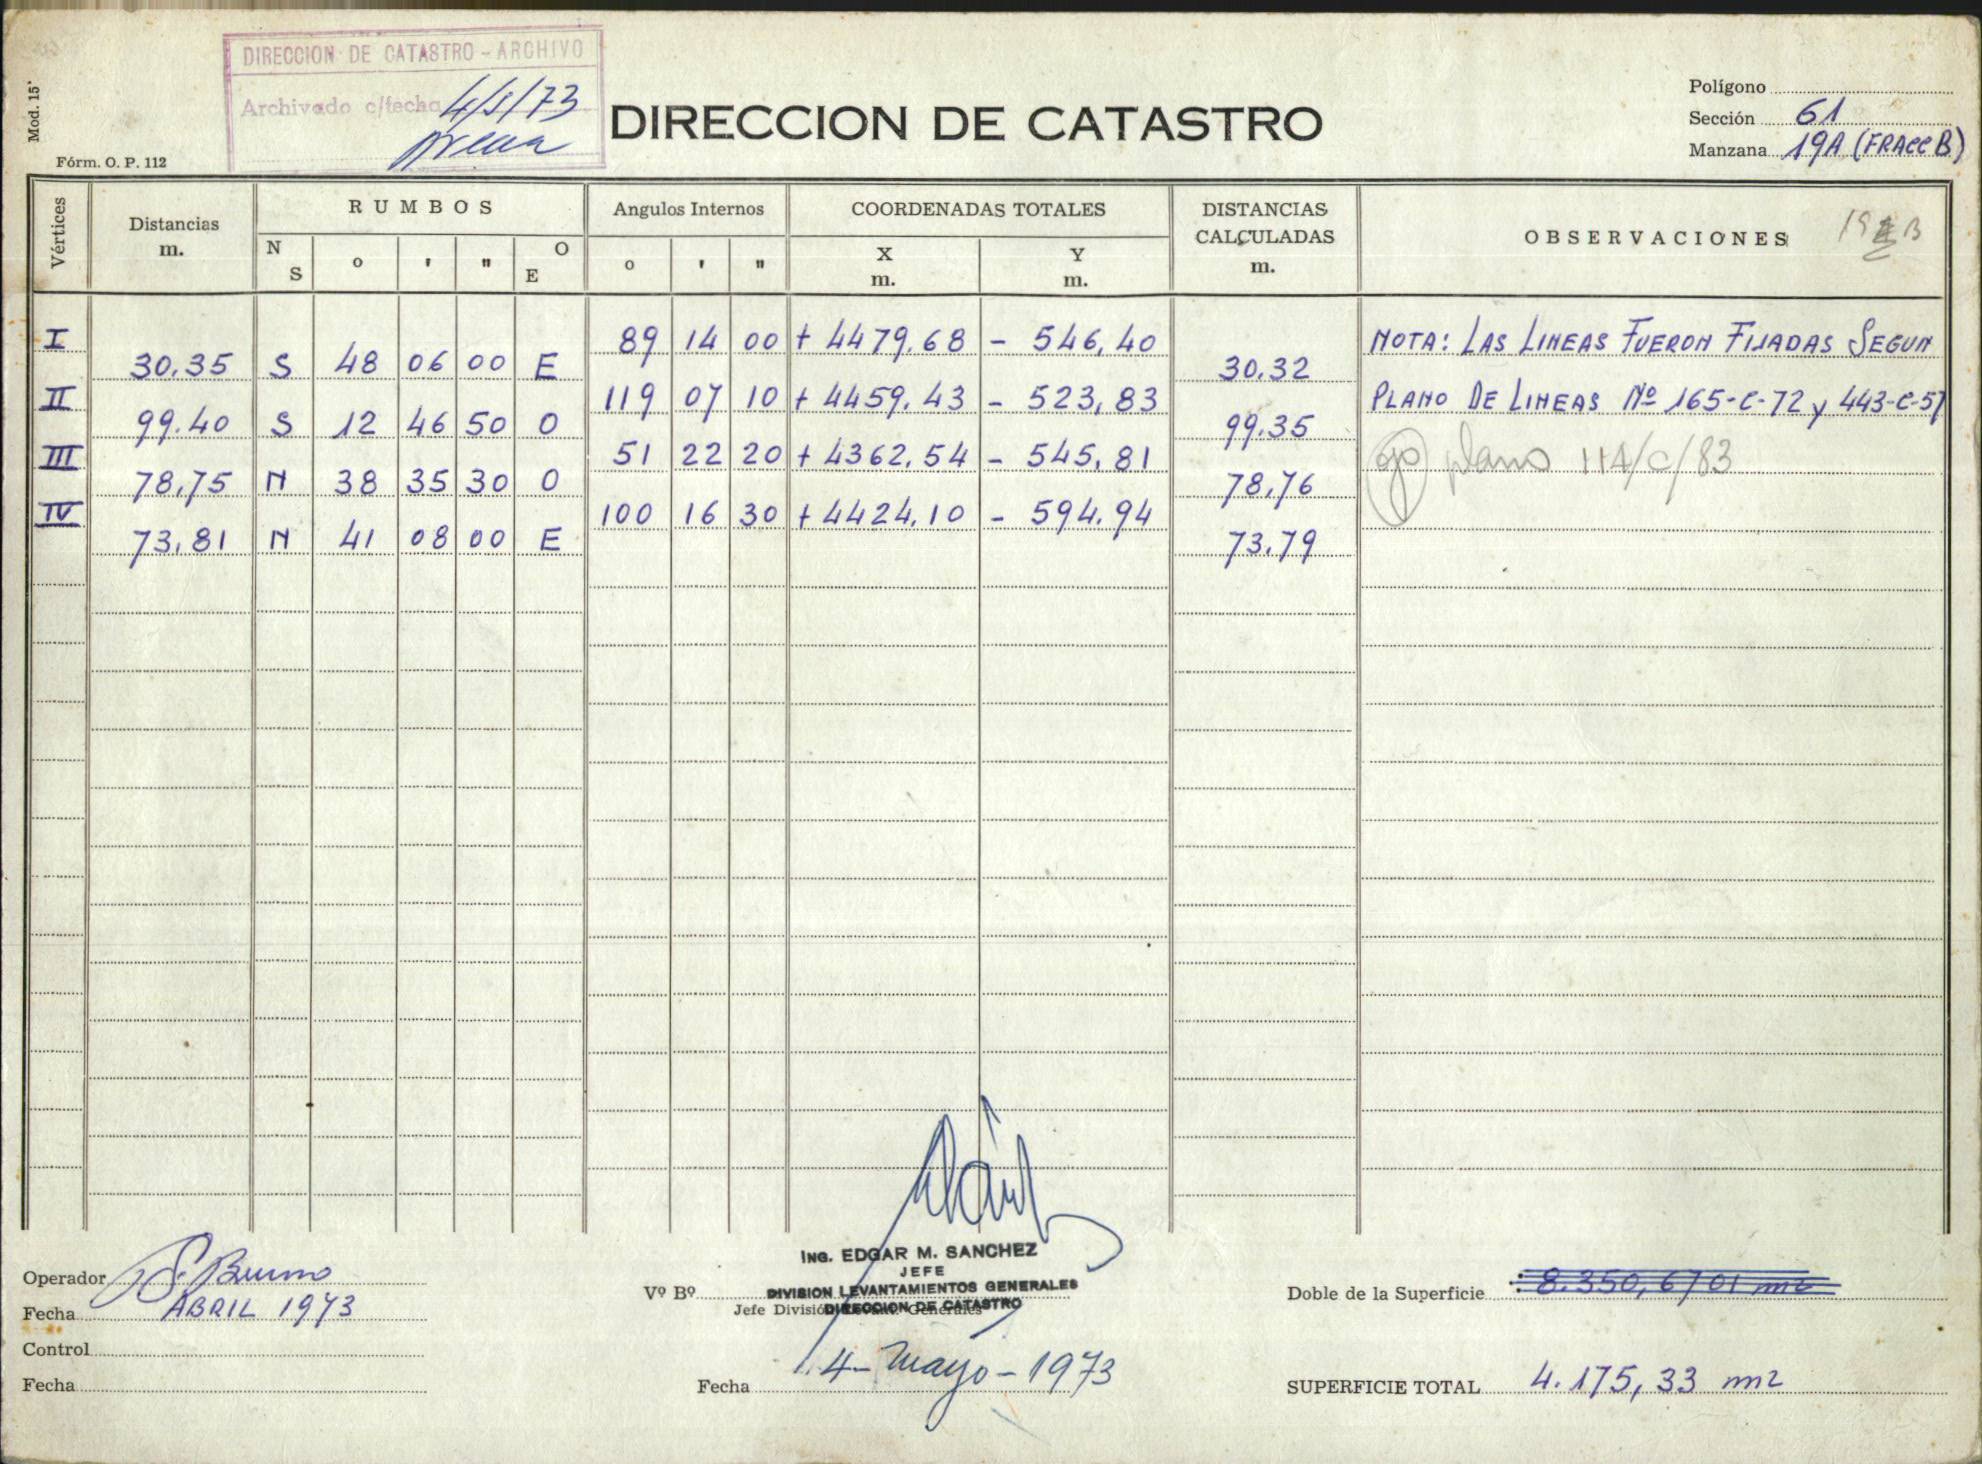 Mod. 15'
Fórm. O. P. 112
DIRECCION DE CATASTRO - ARCHIVO
Archivado c/fecha 4/5/73
DIRECCION DE CATASTRO
Polígono
Sección 61
Manzana 19A (FRACC B)
Vértices
Distancias
m.
RUMBOS
N
S
o ' "
O
E
Angulos Internos
o ' "
COORDENADAS TOTALES
X
m.
Y
m.
DISTANCIAS
CALCULADAS
m.
OBSERVACIONES
I 89 14 00 + 4479,68 - 546,40 NOTA: LAS LINEAS FUERON FIJADAS SEGUN
30.35 S 48 06 00 E 30.32
II 119 07 10 + 4459,43 - 523,83 PLANO DE LINEAS Nº 165-C-72 y 443-C-57
99.40 S 12 46 50 O 99.35
III 51 22 20 + 4362,54 - 545,81 plano 114/C/83
78,75 N 38 35 30 O 78,76
IV 100 16 30 + 4424,10 - 594.94
73,81 N 41 08 00 E 73,79
Operador S. Bruno
Fecha ABRIL 1973
Control
Fecha
ING. EDGAR M. SANCHEZ
JEFE
Vº Bº DIVISION LEVANTAMIENTOS GENERALES
Jefe División Generales
DIRECCION DE CATASTRO
Fecha 4- Mayo - 1973
Doble de la Superficie 8.350,6701 m2
SUPERFICIE TOTAL 4.175,33 m2